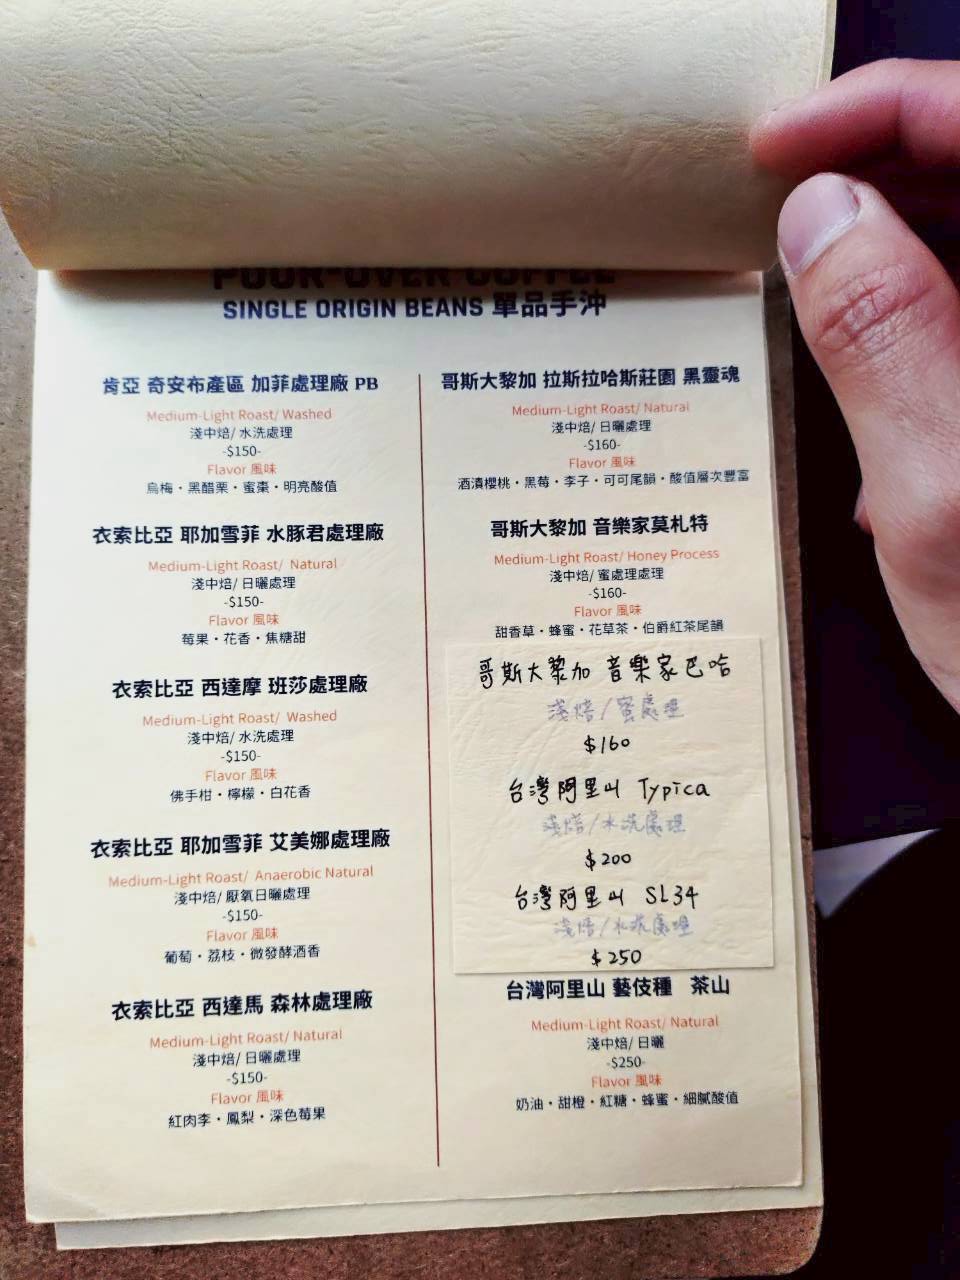 POUR-OVER COFFEE
SINGLE ORIGIN BEANS 單品手沖
肯亞 奇安布產區 加菲處理廠 PB
Medium-Light Roast/ Washed
淺中焙/ 水洗處理
-$150-
Flavor 風味
烏梅・黑醋栗・蜜棗・明亮酸值
衣索比亞 耶加雪菲 水豚君處理廠
Medium-Light Roast/ Natural
淺中焙/ 日曬處理
-$150-
Flavor 風味
莓果・花香・焦糖甜
衣索比亞 西達摩 班莎處理廠
Medium-Light Roast/ Washed
淺中焙/ 水洗處理
-$150-
Flavor 風味
佛手柑・檸檬・白花香
衣索比亞 耶加雪菲 艾美娜處理廠
Medium-Light Roast/ Anaerobic Natural
淺中焙/ 厭氧日曬處理
-$150-
Flavor 風味
葡萄・荔枝・微發酵酒香
衣索比亞 西達馬 森林處理廠
Medium-Light Roast/ Natural
淺中焙/ 日曬處理
-$150-
Flavor 風味
紅肉李・鳳梨・深色莓果
哥斯大黎加 拉斯拉哈斯莊園 黑靈魂
Medium-Light Roast/ Natural
淺中焙/ 日曬處理
-$160-
Flavor 風味
酒漬櫻桃・黑莓・李子・可可尾韻・酸值層次豐富
哥斯大黎加 音樂家莫札特
Medium-Light Roast/ Honey Process
淺中焙/ 蜜處理處理
-$160-
Flavor 風味
甜香草・蜂蜜・花草茶・伯爵紅茶尾韻
哥斯大黎加 音樂家巴哈
淺焙/蜜處理
$160
台灣阿里山 Typica
淺焙/水洗處理
$200
台灣阿里山 SL34
淺焙/水洗處理
$250
台灣阿里山 藝伎種 茶山
Medium-Light Roast/ Natural
淺中焙/ 日曬
-$250-
Flavor 風味
奶油・甜橙・紅糖・蜂蜜・細膩酸值